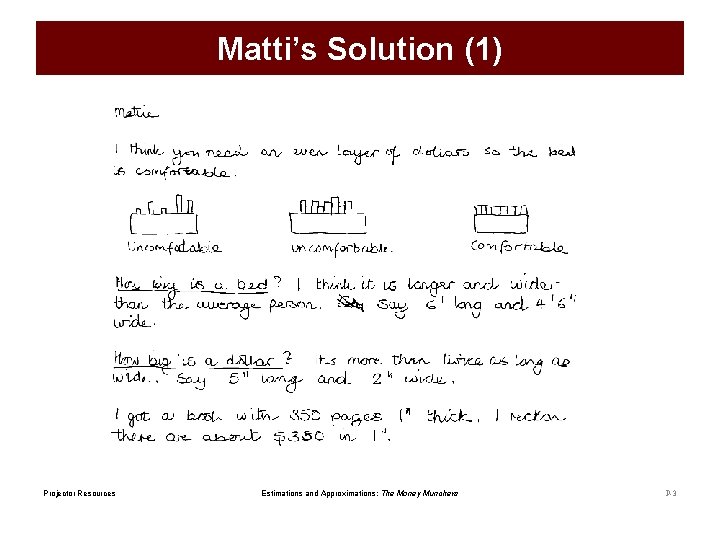 Matti's Solution (1)
Mattie
I think you need an even layer of dollars so the bed
is comfortable.
Uncomfortable uncomfortable. Comfortable
How big is a bed? I think it is larger and wider
than the average person. Say 6' long and 4'6"
wide.
How big is a dollar? Its more than twice as long as
wide. Say 5" long and 2" wide.
I got a book with 350 pages 1" thick. I reckon
there are about $350 in 1".
Projector Resources Estimations and Approximations: The Money Munchers P-3